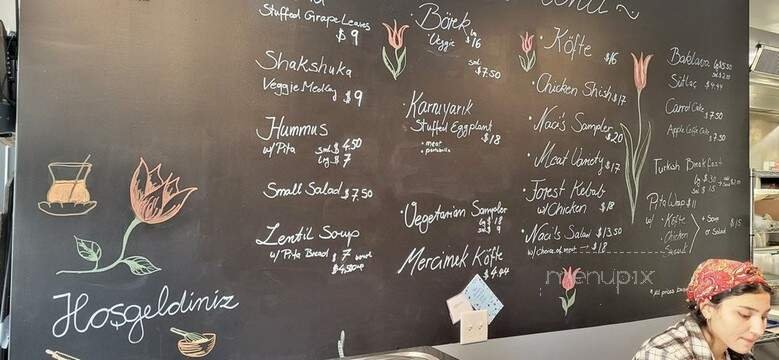 Stuffed Grape Leaves
$9
Shakshuka
Veggie Medley $9
Hummus
w/ Pita sml. $4.50
Lrg. $7
Small Salad $7.50
Lentil Soup
w/ Pita Bread $7 bowl
$4.50 cup
Hoşgeldiniz
Börek
Veggie Lg $16
sml. $7.50
Karnıyarık
Stuffed Eggplant
$18
• meat
• portabella
Vegetarian Sampler
Lg $18
sm $9
Mercimek Köfte
$4.04
Köfte $16
Chicken Shish $17
Naci's Sampler
$20
Meat Variety $17
Forest Kebab
w/ Chicken $18
Naci's Salad $13.50
w/ choice of meat → $18
Baklava
Sütlaç $4.44
Carrot Cake
$7.50
Apple Coffee Cake
$7.50
Turkish Breakfast
Lg $30
sm $15
Pita Wrap $11
w/ • Köfte
• Chicken
+ Soup
or Salad
$15
menupix
* All prices